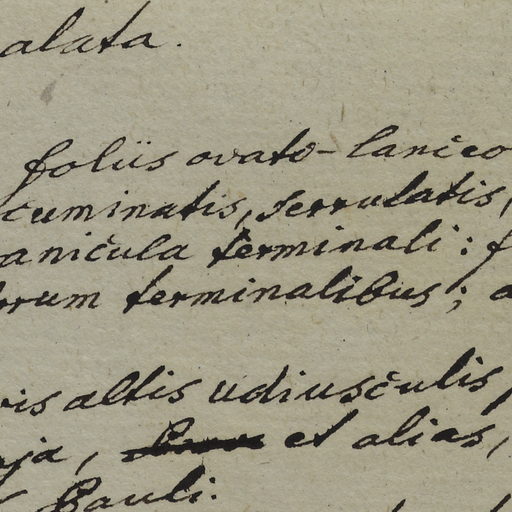 alata.
foliis ovato-lanceo
cuminatis, serrulatis,
anicula terminali: f
rum terminalibus; a
vis altis udiusculis,
ja, et alias,
Pauli.